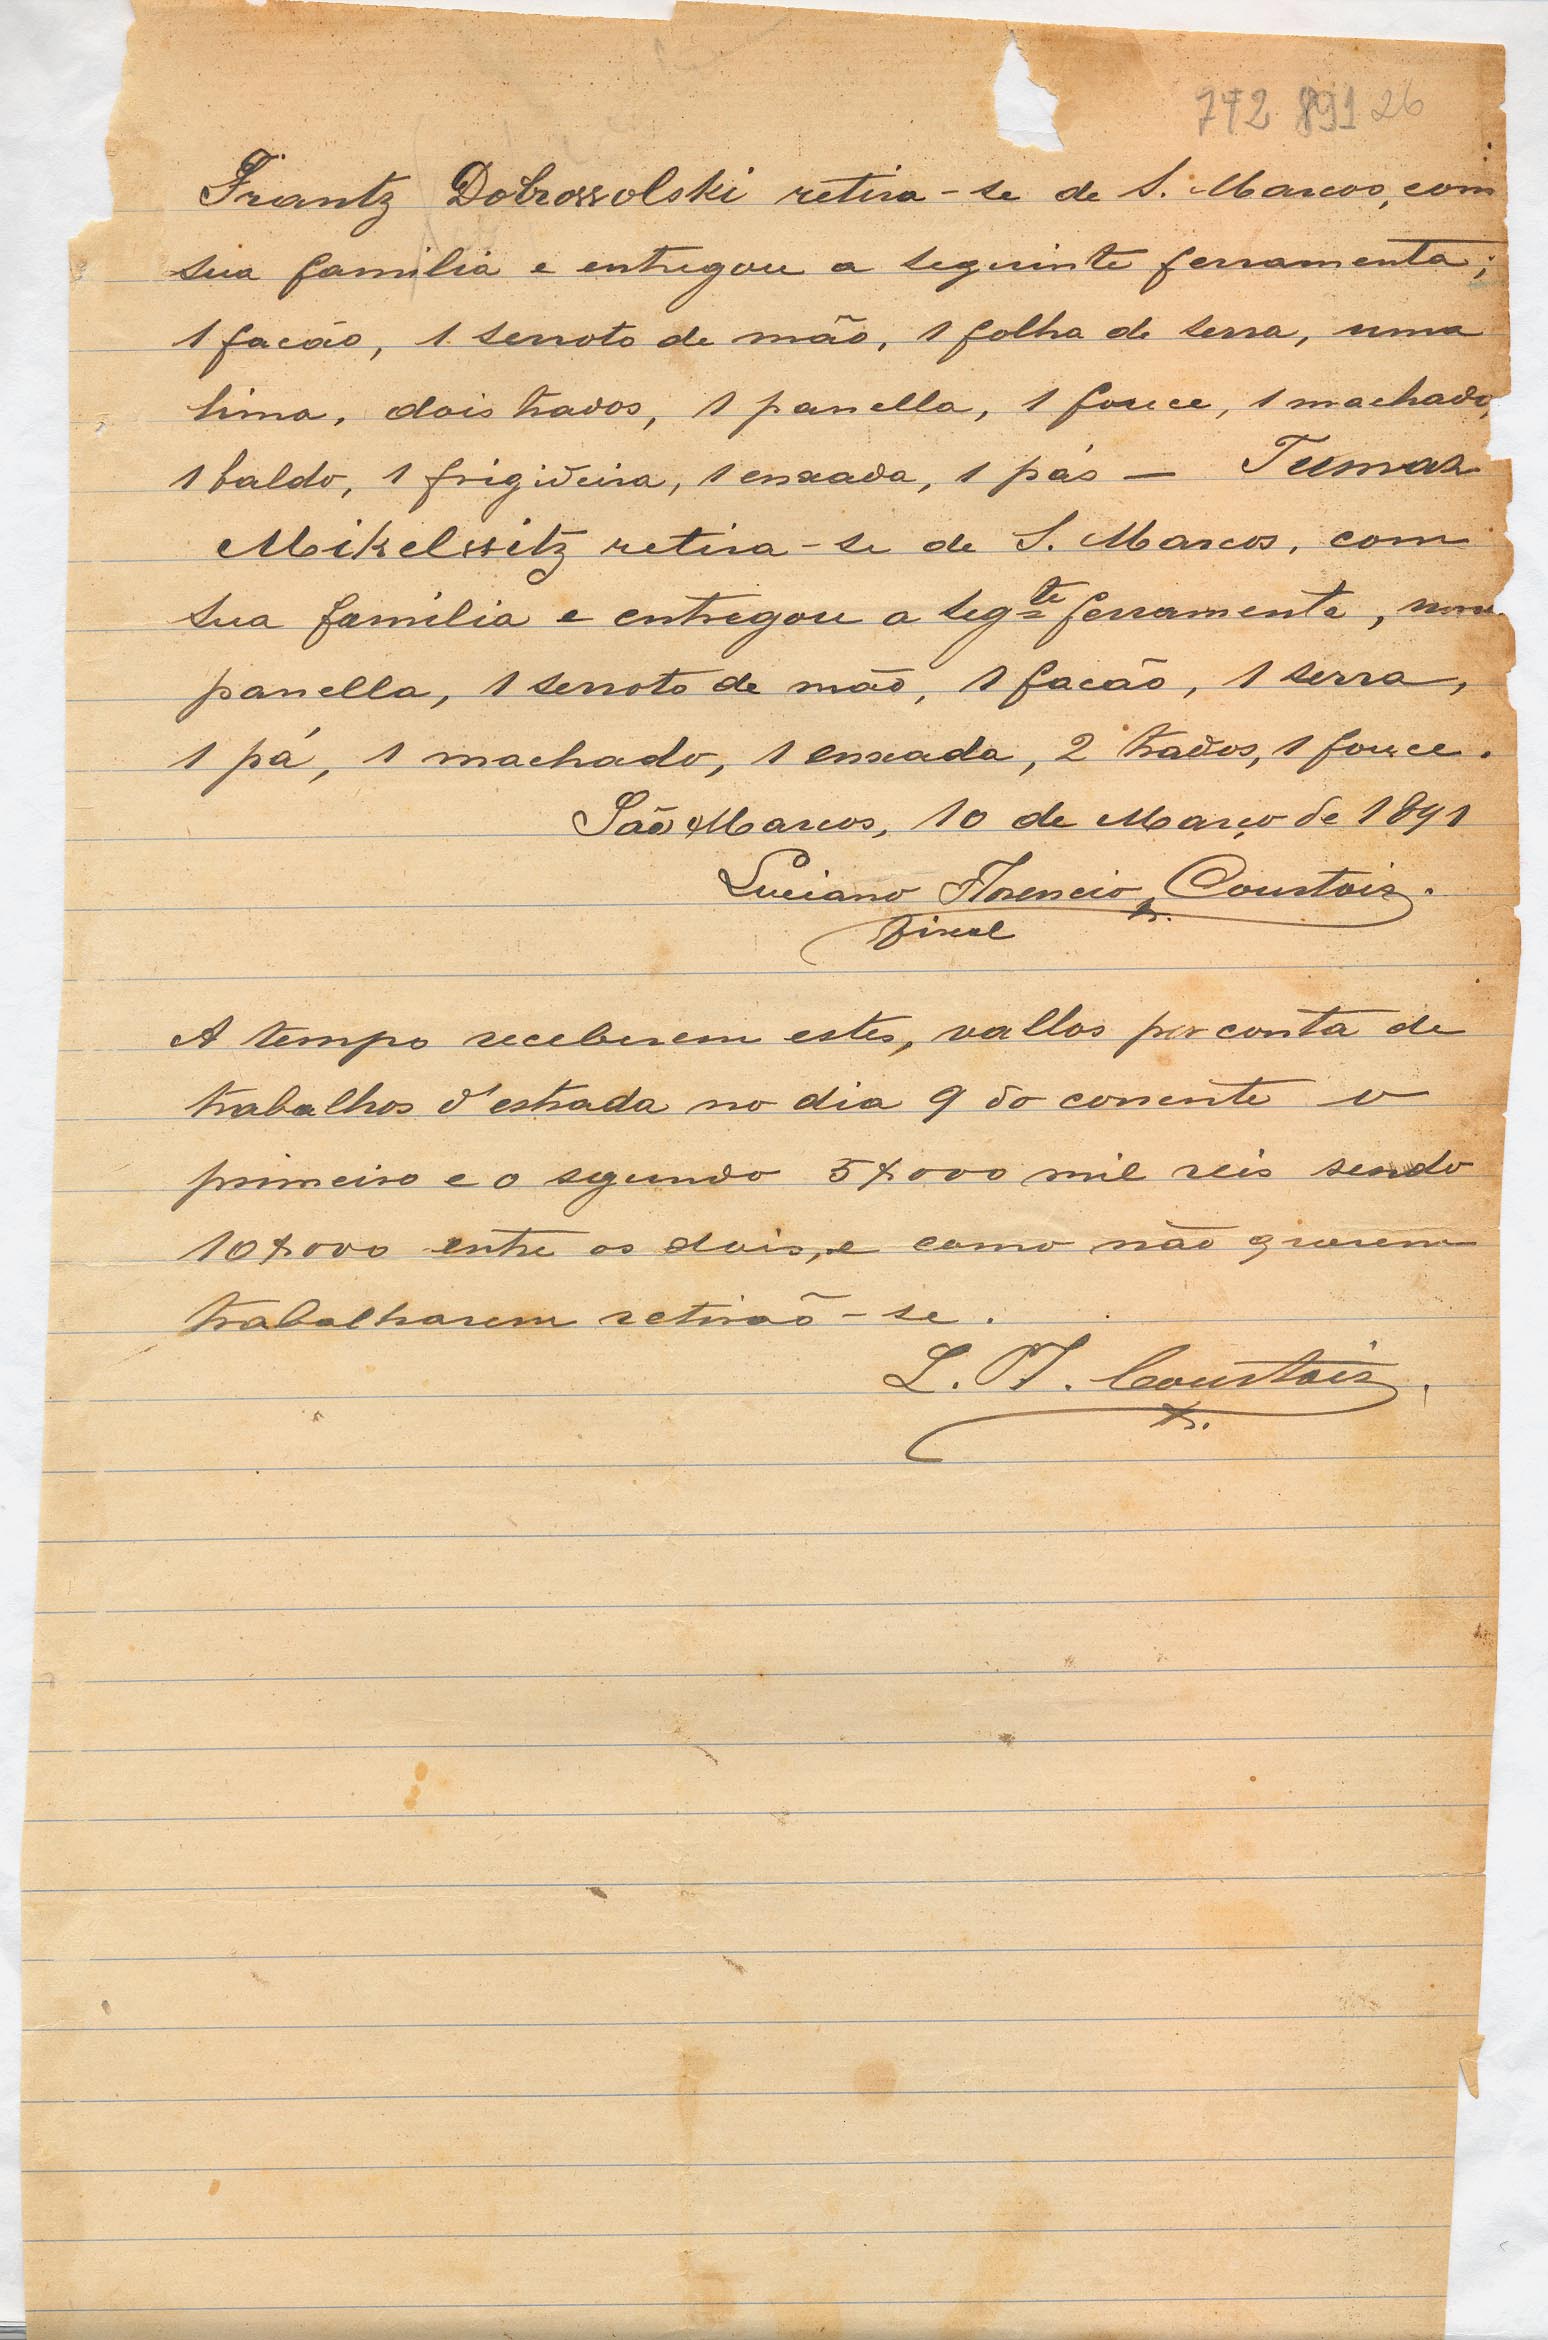 742 891 26
Frantz Dobrowolski retira-se de S. Marcos, com
sua familia e entregou a seguinte ferramenta;
1 facão, 1 serroto de mão, 1 folha de serra, uma
lima, dois trados, 1 panella, 1 fouce, 1 machado,
1 baldo, 1 frigideira, 1 enxada, 1 pás — Tumas
Mikelwitz retira-se de S. Marcos, com
sua familia e entregou a segte ferramente, uma
panella, 1 serroto de mão, 1 facão, 1 serra,
1 pá, 1 machado, 1 enxada, 2 trados, 1 fouce.
São Marcos, 10 de Março de 1891
Luciano Florencio Courtois.
fiscal
A tempo receberem estes, vallos por conta de
trabalhos d'estrada no dia 9 do corrente o
primeiro e o segundo 5$000 mil reis sendo
10$000 entre os dois, e como não querem
trabalharem retirão-se.
L. F. Courtois.